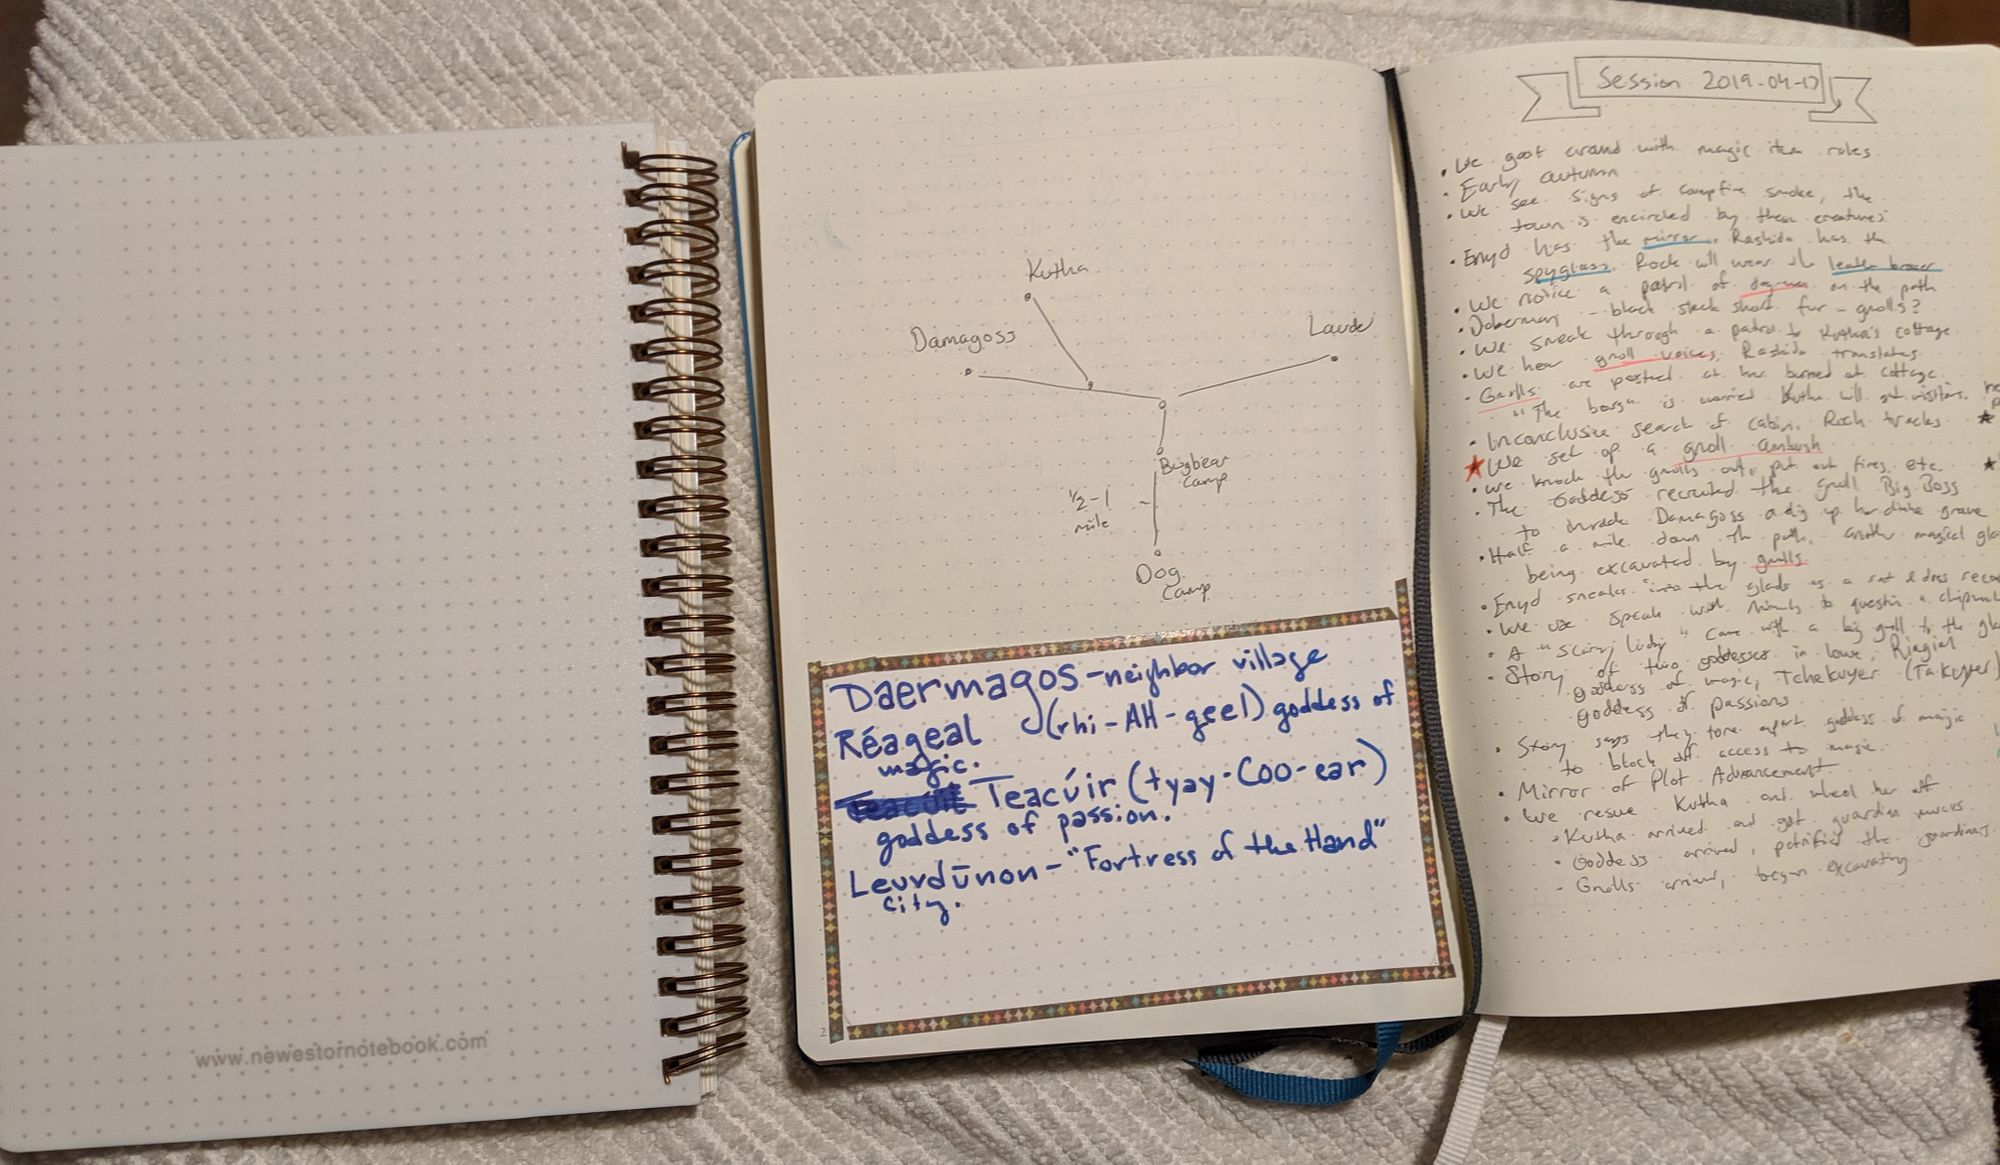 www.newestornotebook.com
Kutha
Damagoss
Laude
Bugbear
Camp
1/2-1
mile
Dog
Camp
Daermagos - neighbor village
Réageal (rhi-AH-geel) goddess of
magic.
Teacúir (tyay-Coo-ear)
goddess of passion.
Leurdūnon - "Fortress of the Hand"
city.
2
Session 2019-04-17
• We goof around with magic item rules
• Early autumn
• We see signs of campfire smoke, the
town is encircled by these creatures
• Enyd has the mirror, Rashida has the
spyglass, Rock will wear the leather bracer
• We notice a patrol of on the path
• Doberman - black sleek short fur - gnolls?
• We sneak through a patrol to Kutha's cottage
• We hear gnoll voices, Rashida translates
• Gnolls are posted at her burned out cottage.
"The is worried Kutha will get visitors.
• Inconclusive search of cabin, Rock tracks
• We set up a gnoll ambush
• We knock the gnolls out, put out fires, etc.
• The Goddess recruited the gnoll Big Boss
to invade Damagoss dig up her divine grave
• Half a mile down the path, another magical
being excavated by gnolls
• Enyd sneaks into the glade as a rat & does
• We use Speak with Animals to question a
• A "scary lady" came with a big gnoll to the
• Story of two goddesses in lowe Riagial
goddess of magic, Tchekuyer (Takuyer)
goddess of passions
• Story says they tore apart goddess of magic
to block off access to magic.
• Mirror of Plot Advancement
• We rescue Kutha and wheel her off
• Kutha arrived and got guardian
• Goddess arrived, petrified the guardians
- Gnolls arrive, began excavating